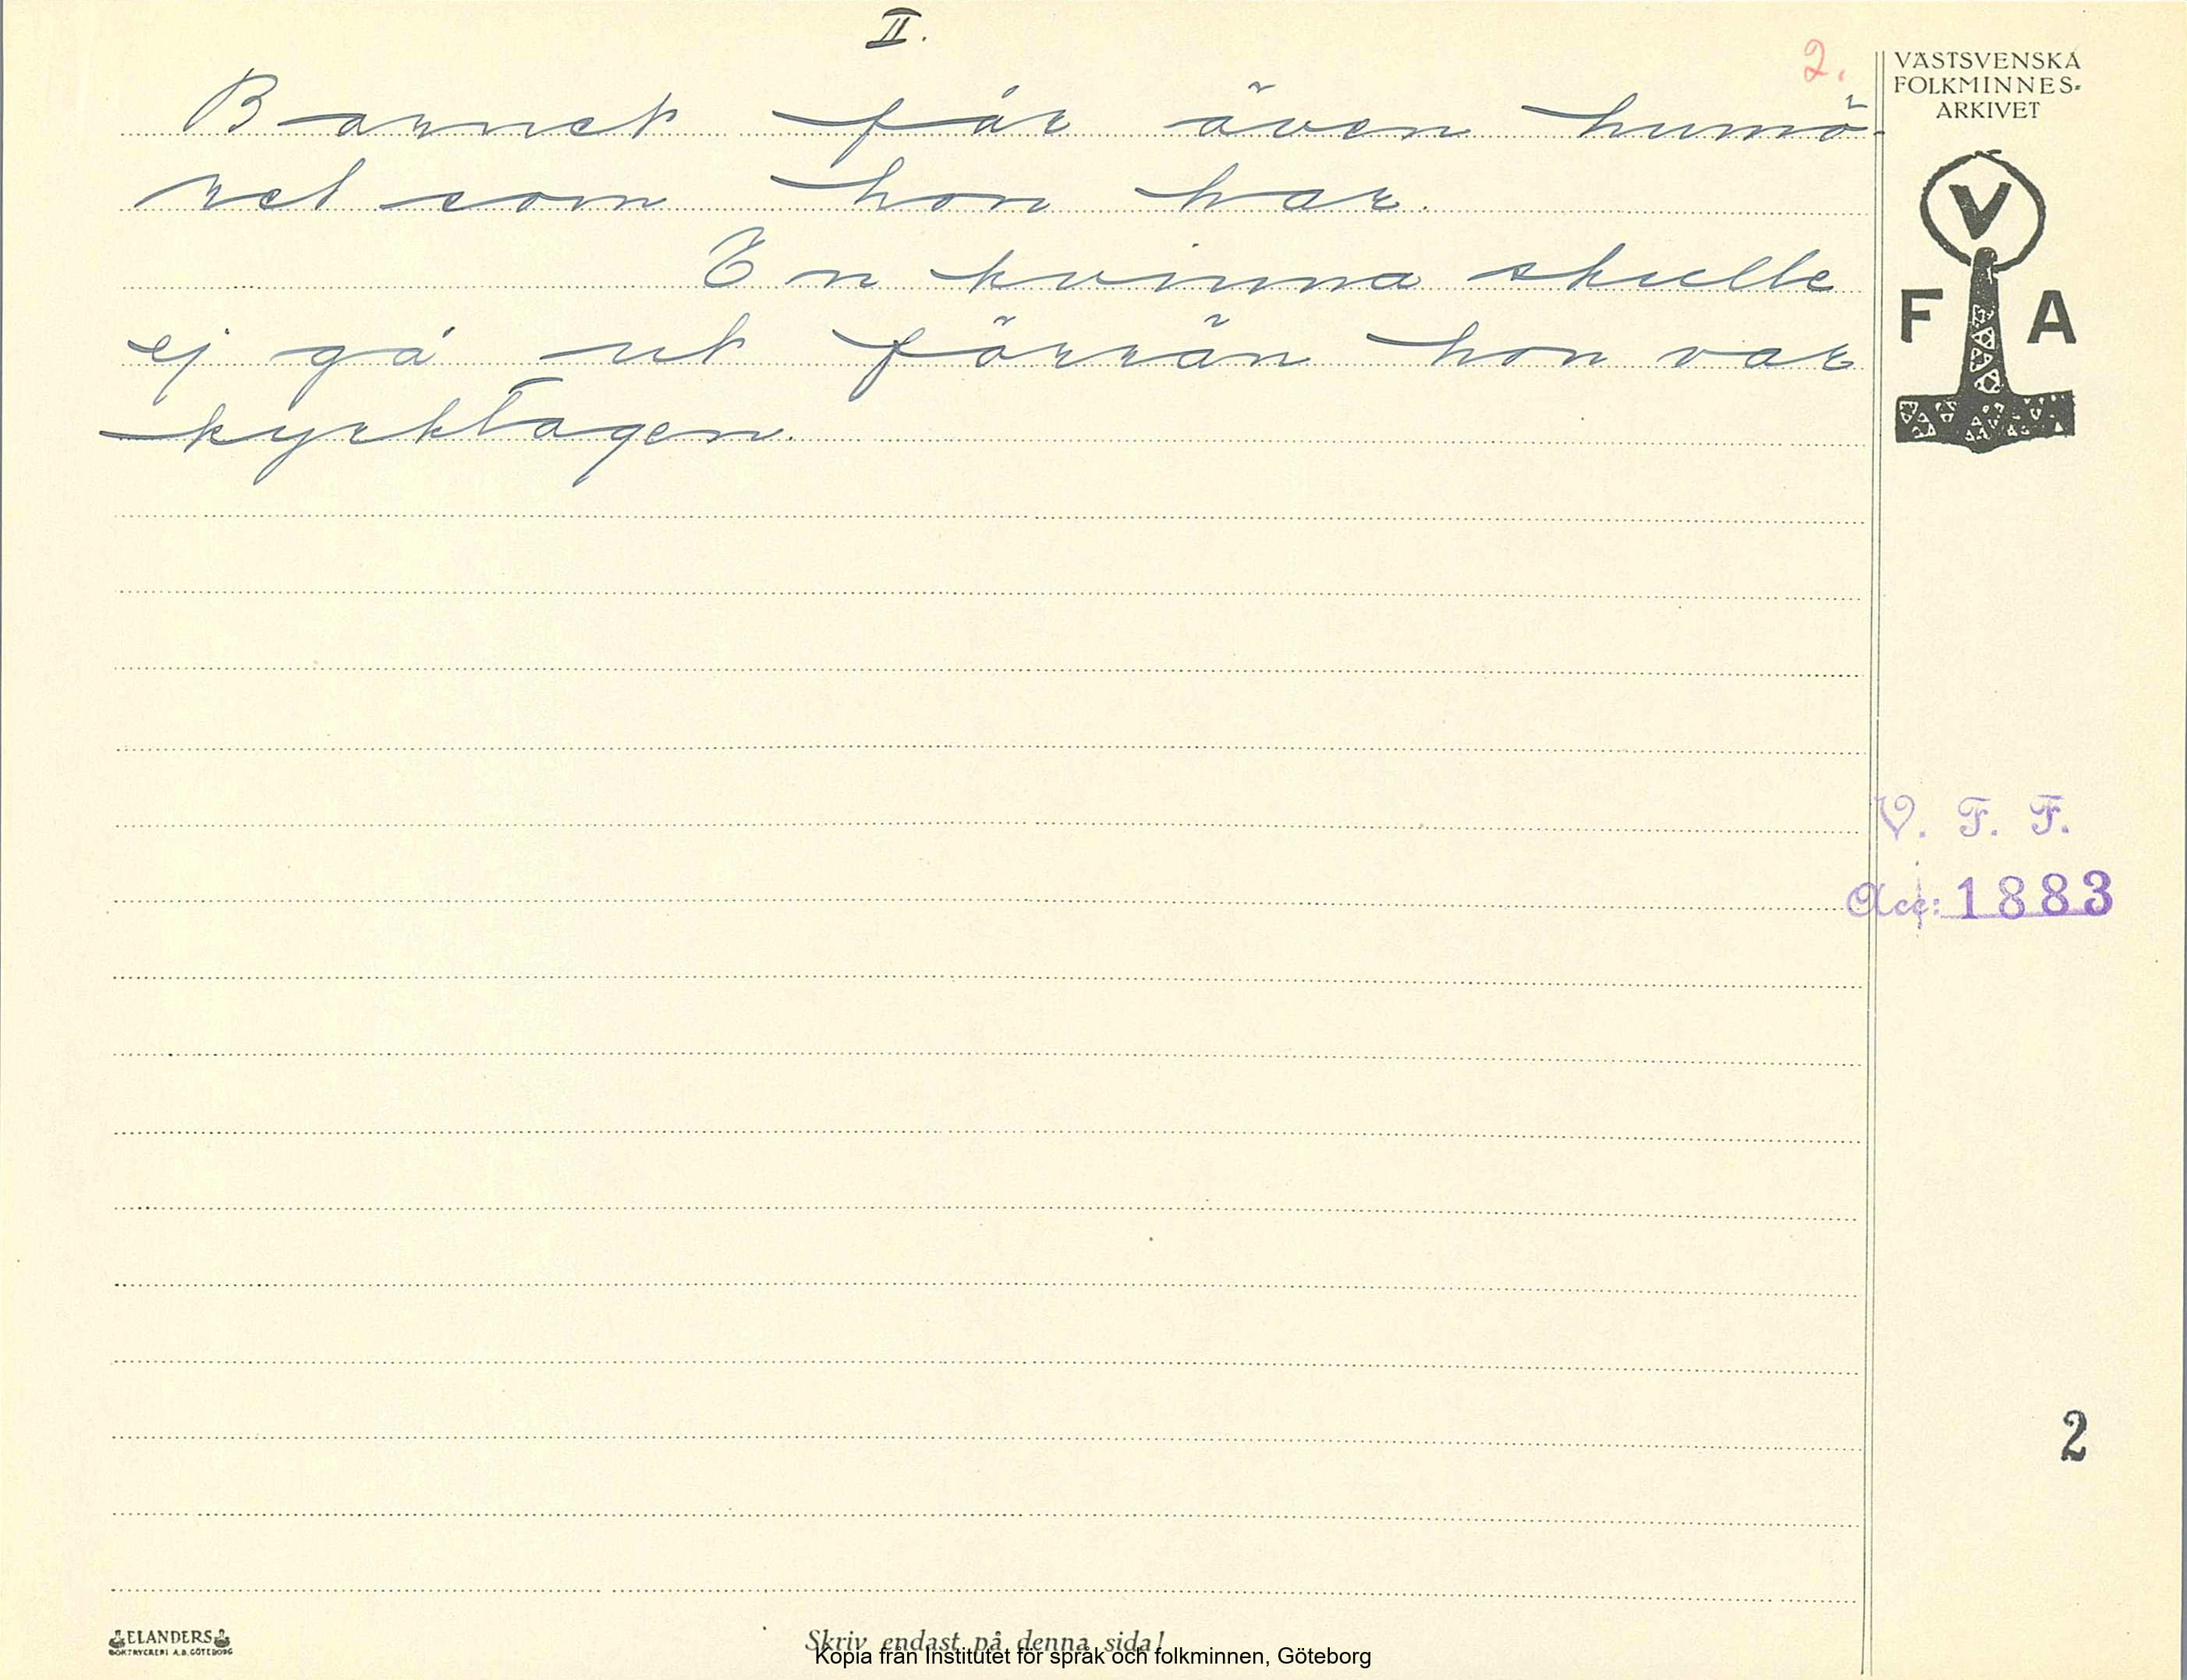 II.
2.
Barnet får även humö-
ret som hon har.
En kvinna skulle
ej gå ut förrän hon var
kyrktagen.
VÄSTSVENSKA
FOLKMINNES-
ARKIVET
V
F A
V. F. F.
Acc: 1883
2
ELANDERS
BOKTRYCKERI A.B. GÖTEBORG
Skriv endast på denna sida!
Kopia från Institutet för språk och folkminnen, Göteborg